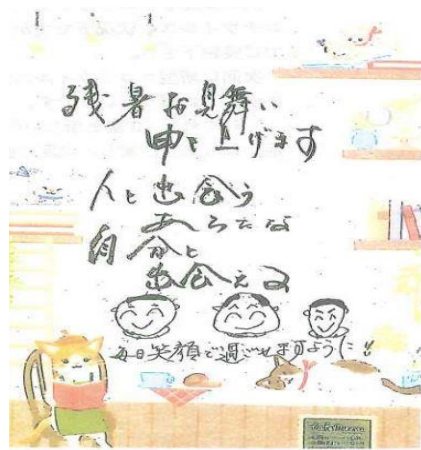 残暑お見舞い
申し上げます
人と出会う
あらたな
自分と
出会える
毎日笑顔で過ごせますように!!